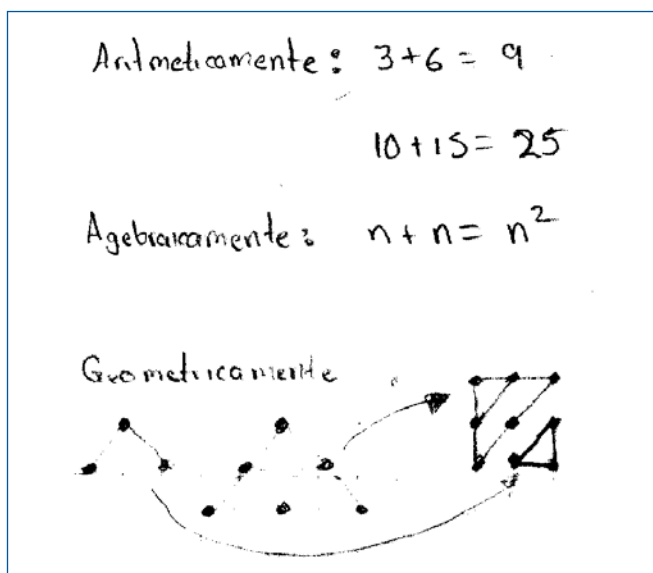 Aritmeticamente: 3+6 = 9
10+15 = 25
Agebraicamente: n + n = n²
Geometricamente